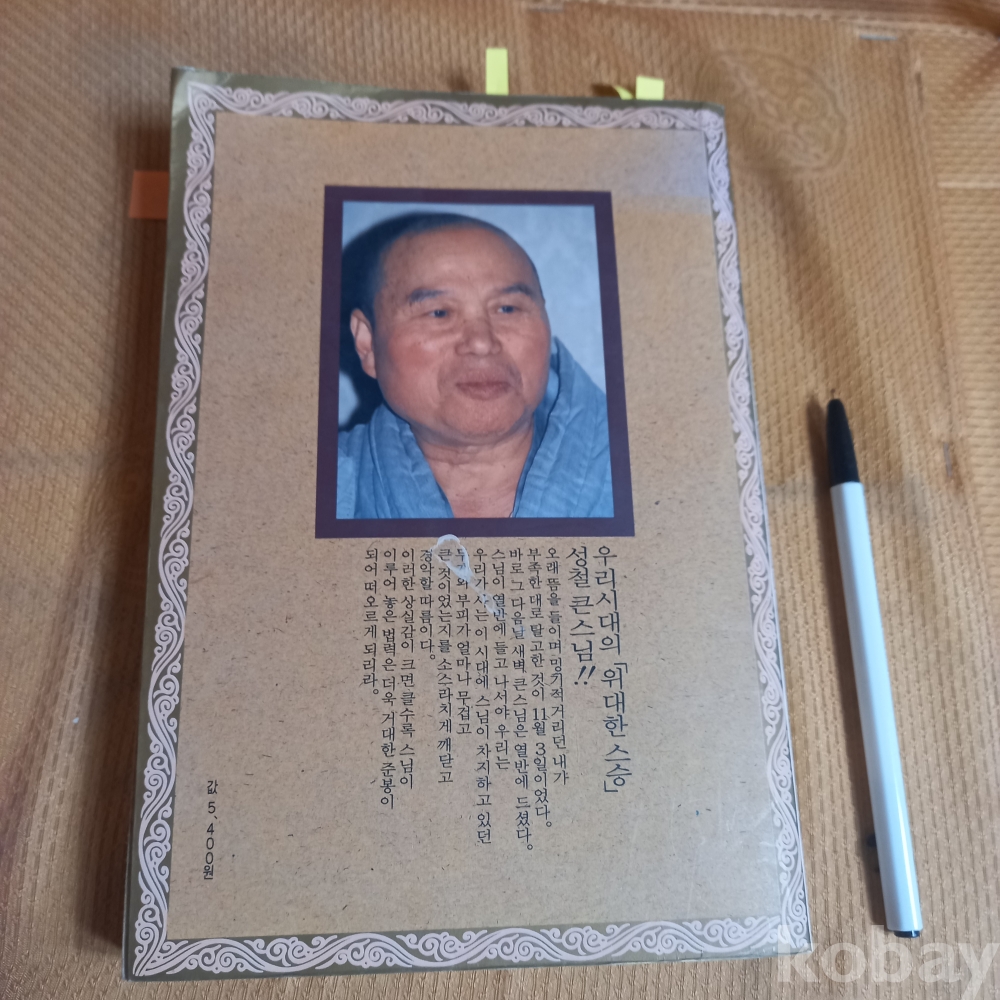 우리시대의 「위대한 스승」
성철 큰스님!!
오래 뜸을 들이며 밍기적거리던 내가
부족한 대로 탈고한 것이 11월 3일이었다.
바로 그 다음날 새벽 큰스님은 열반에 드셨다.
스님이 열반에 들고 나서야 우리는
우리가 사는 이 시대에 스님이 차지하고 있던
부피가 얼마나 무겁고
큰 것이었는지를 소스라치게 깨닫고
경악할 따름이다.
이러한 상실감이 크면 클수록 스님이
이루어 놓은 법력은 더욱 거대한 준봉이
되어 떠오르게 되리라.
값 5,400원
kobay